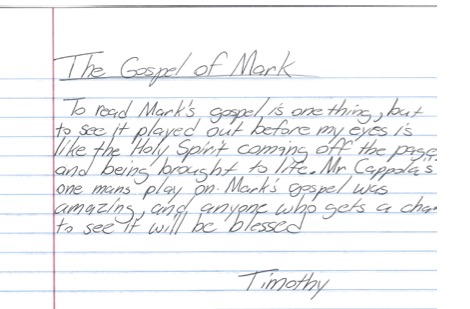 The Gospel of Mark
To read Mark's gospel is one thing, but
to see it played out before my eyes is
like the Holy Spirit coming off the page,
and being brought to life. Mr Cappola's
one mans play on Mark's gospel was
amazing, and anyone who gets a cha
to see it will be blessed
Timothy